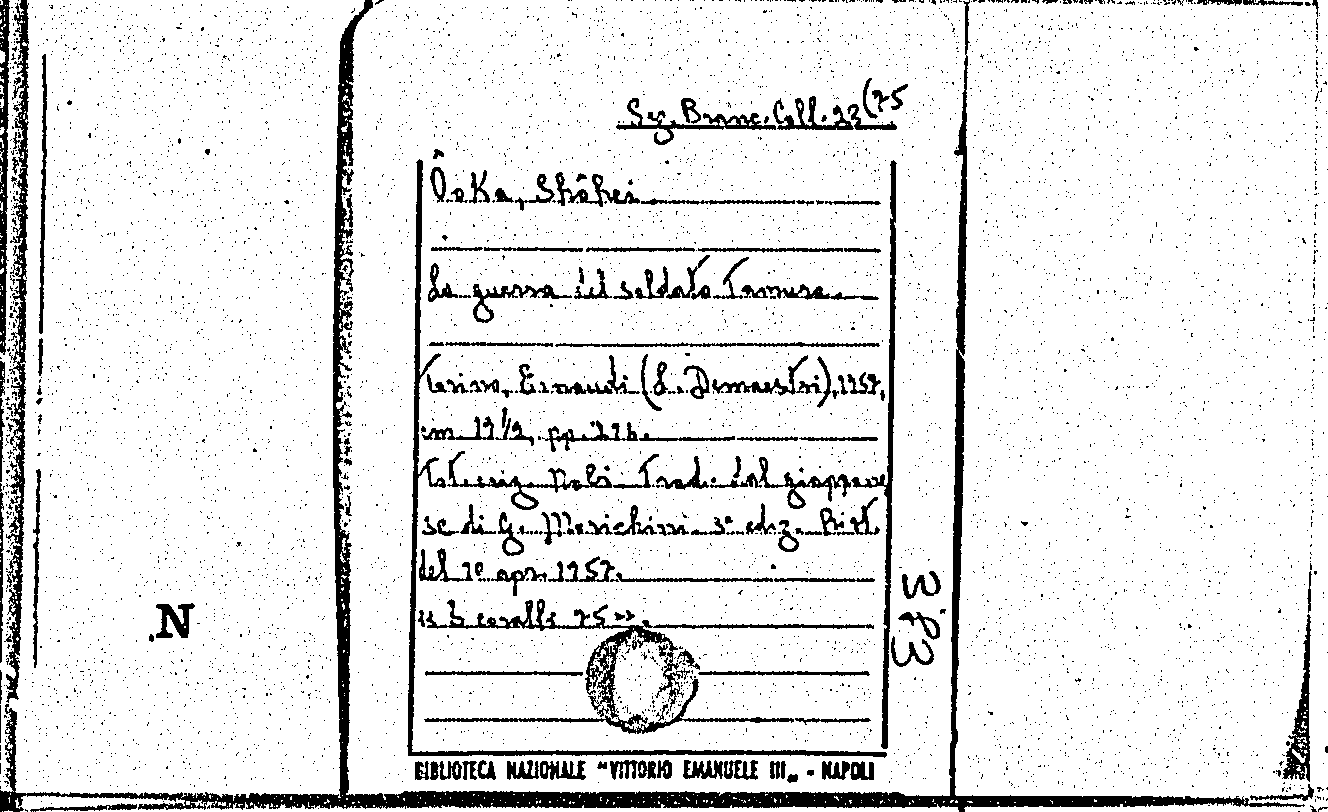 Sez. Branc. Coll. 23(75
Ôoka, Shôhei.
La guerra del soldato Tamura.
Torino, Einaudi (L. Demaestri), 1957,
cm. 19 1/2, pp. 216.
Tit. orig. Nobi. Trad. dal giappone
se di G. Morichini. 3ª ediz. Rist.
del 1º apr. 1957.
is I coralli 75 ».
N
383
BIBLIOTECA NAZIONALE "VITTORIO EMANUELE III„ - NAPOLI